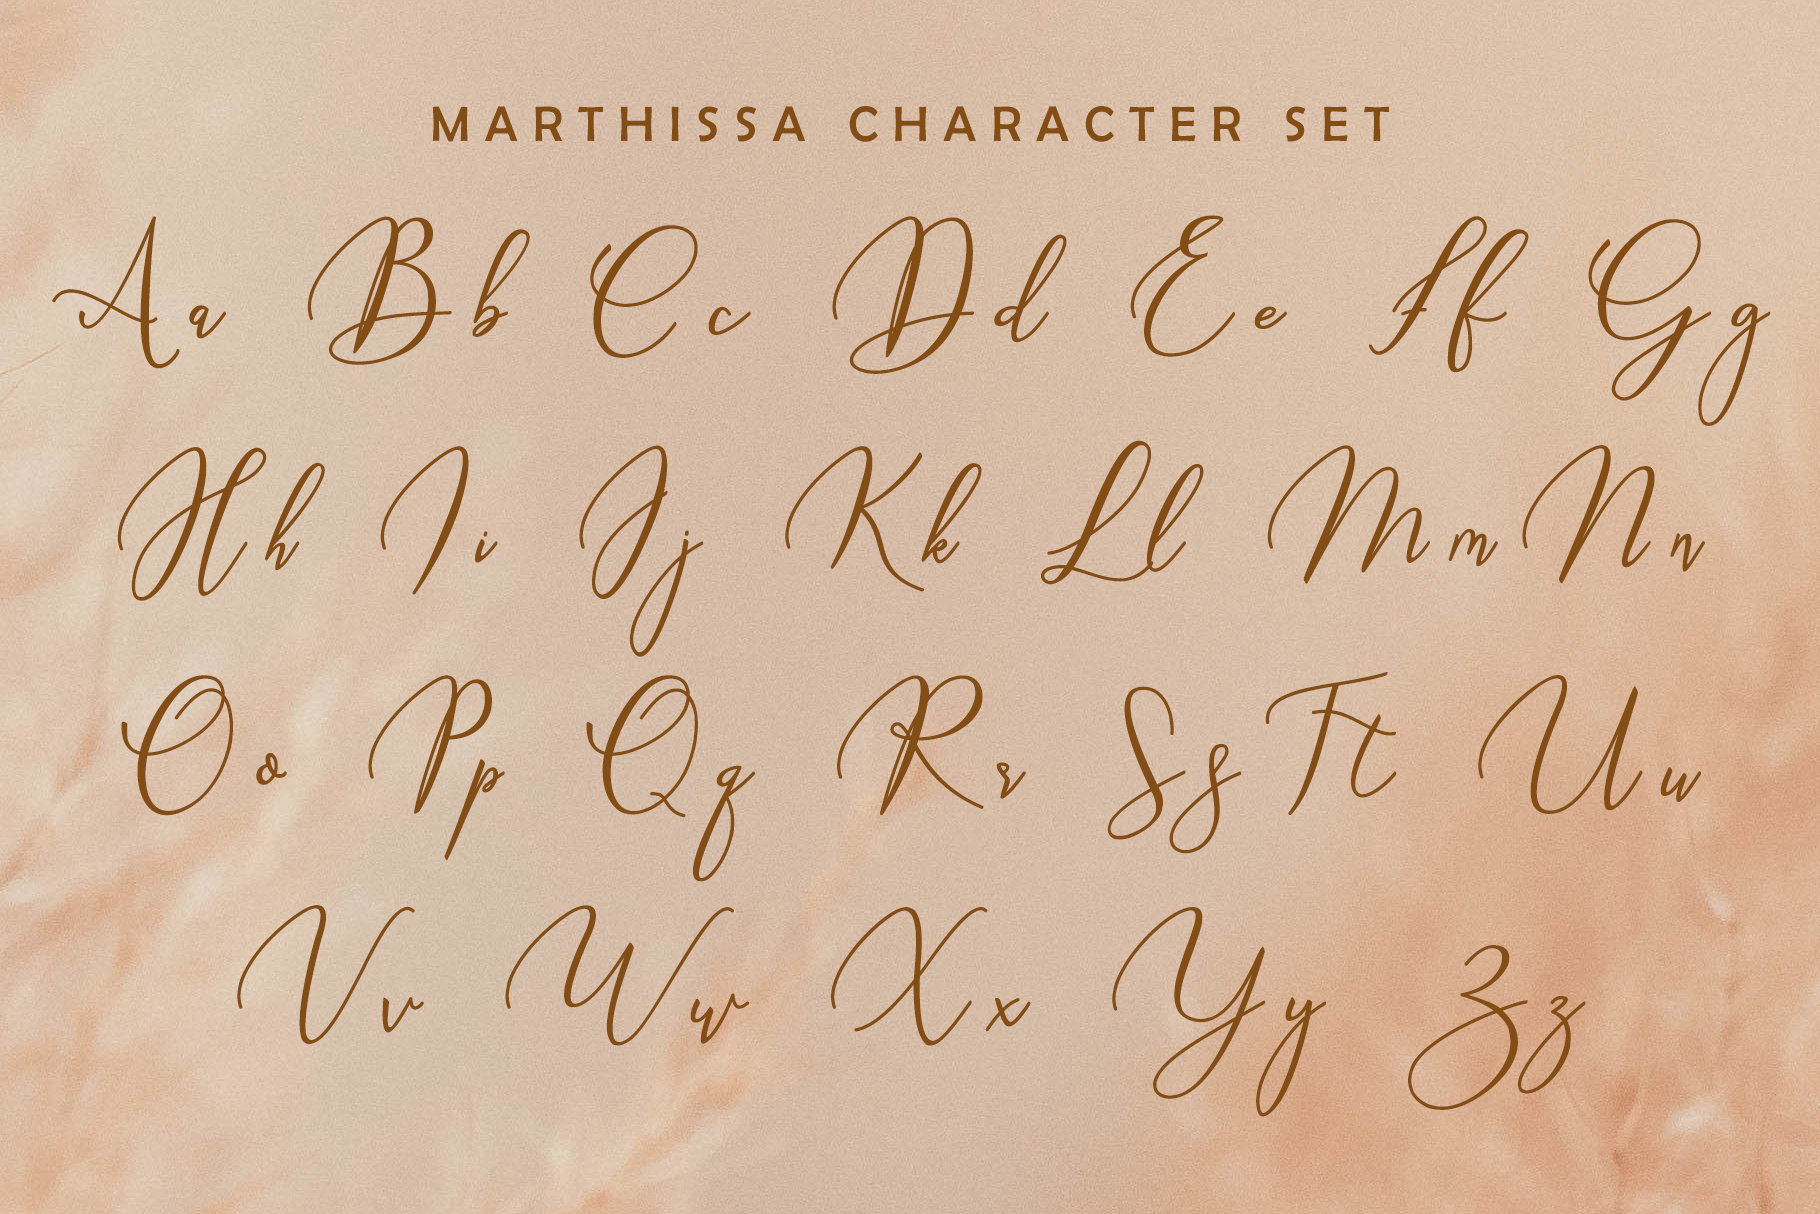 MARTHISSA CHARACTER SET
Aa Bb Cc Dd Ee Ff Gg
Hh Ii Jj Kk Ll Mm Nn
Oo Pp Qq Rr Ss Tt Uu
Vv Ww Xx Yy Zz